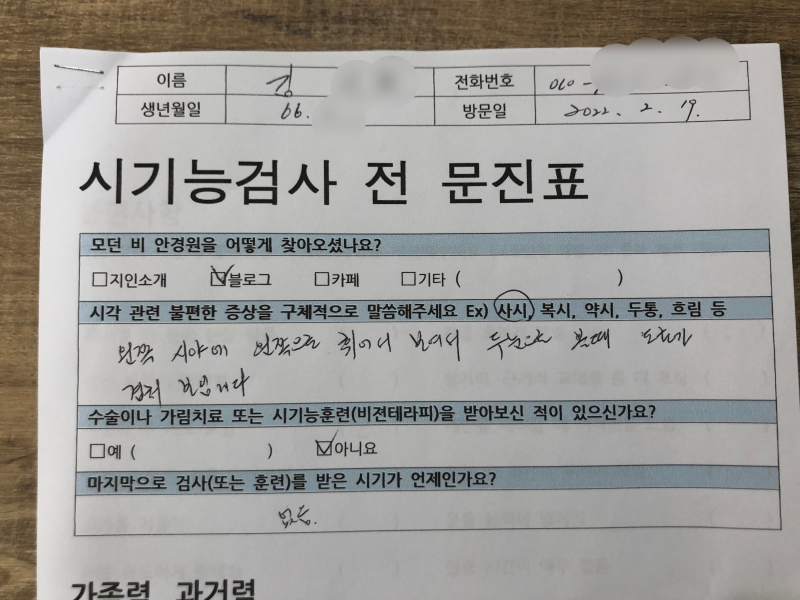 이름 김 전화번호 010-
생년월일 66. 방문일 2022. 2. 19.
시기능검사 전 문진표
모던 비 안경원을 어떻게 찾아오셨나요?
□지인소개 ☑블로그 □카페 □기타 ( )
시각 관련 불편한 증상을 구체적으로 말씀해주세요 Ex) 사시, 복시, 약시, 두통, 흐림 등
왼쪽 시야에 왼쪽으로 휘어서 보여서 두눈으로 볼때
겹쳐 보입니다
수술이나 가림치료 또는 시기능훈련(비젼테라피)을 받아보신 적이 있으신가요?
□예 ( ) ☑아니요
마지막으로 검사(또는 훈련)를 받은 시기가 언제인가요?
없음.
가족력, 과거력